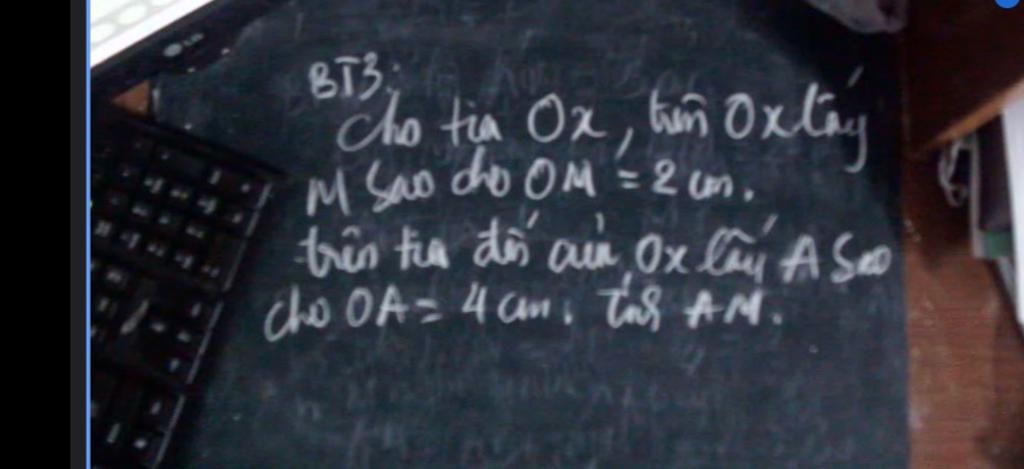 BT3:
Cho tia Ox, trên Ox lấy
M sao cho OM = 2 cm.
trên tia đối của Ox lấy A sao
cho OA = 4 cm. Tính AM.